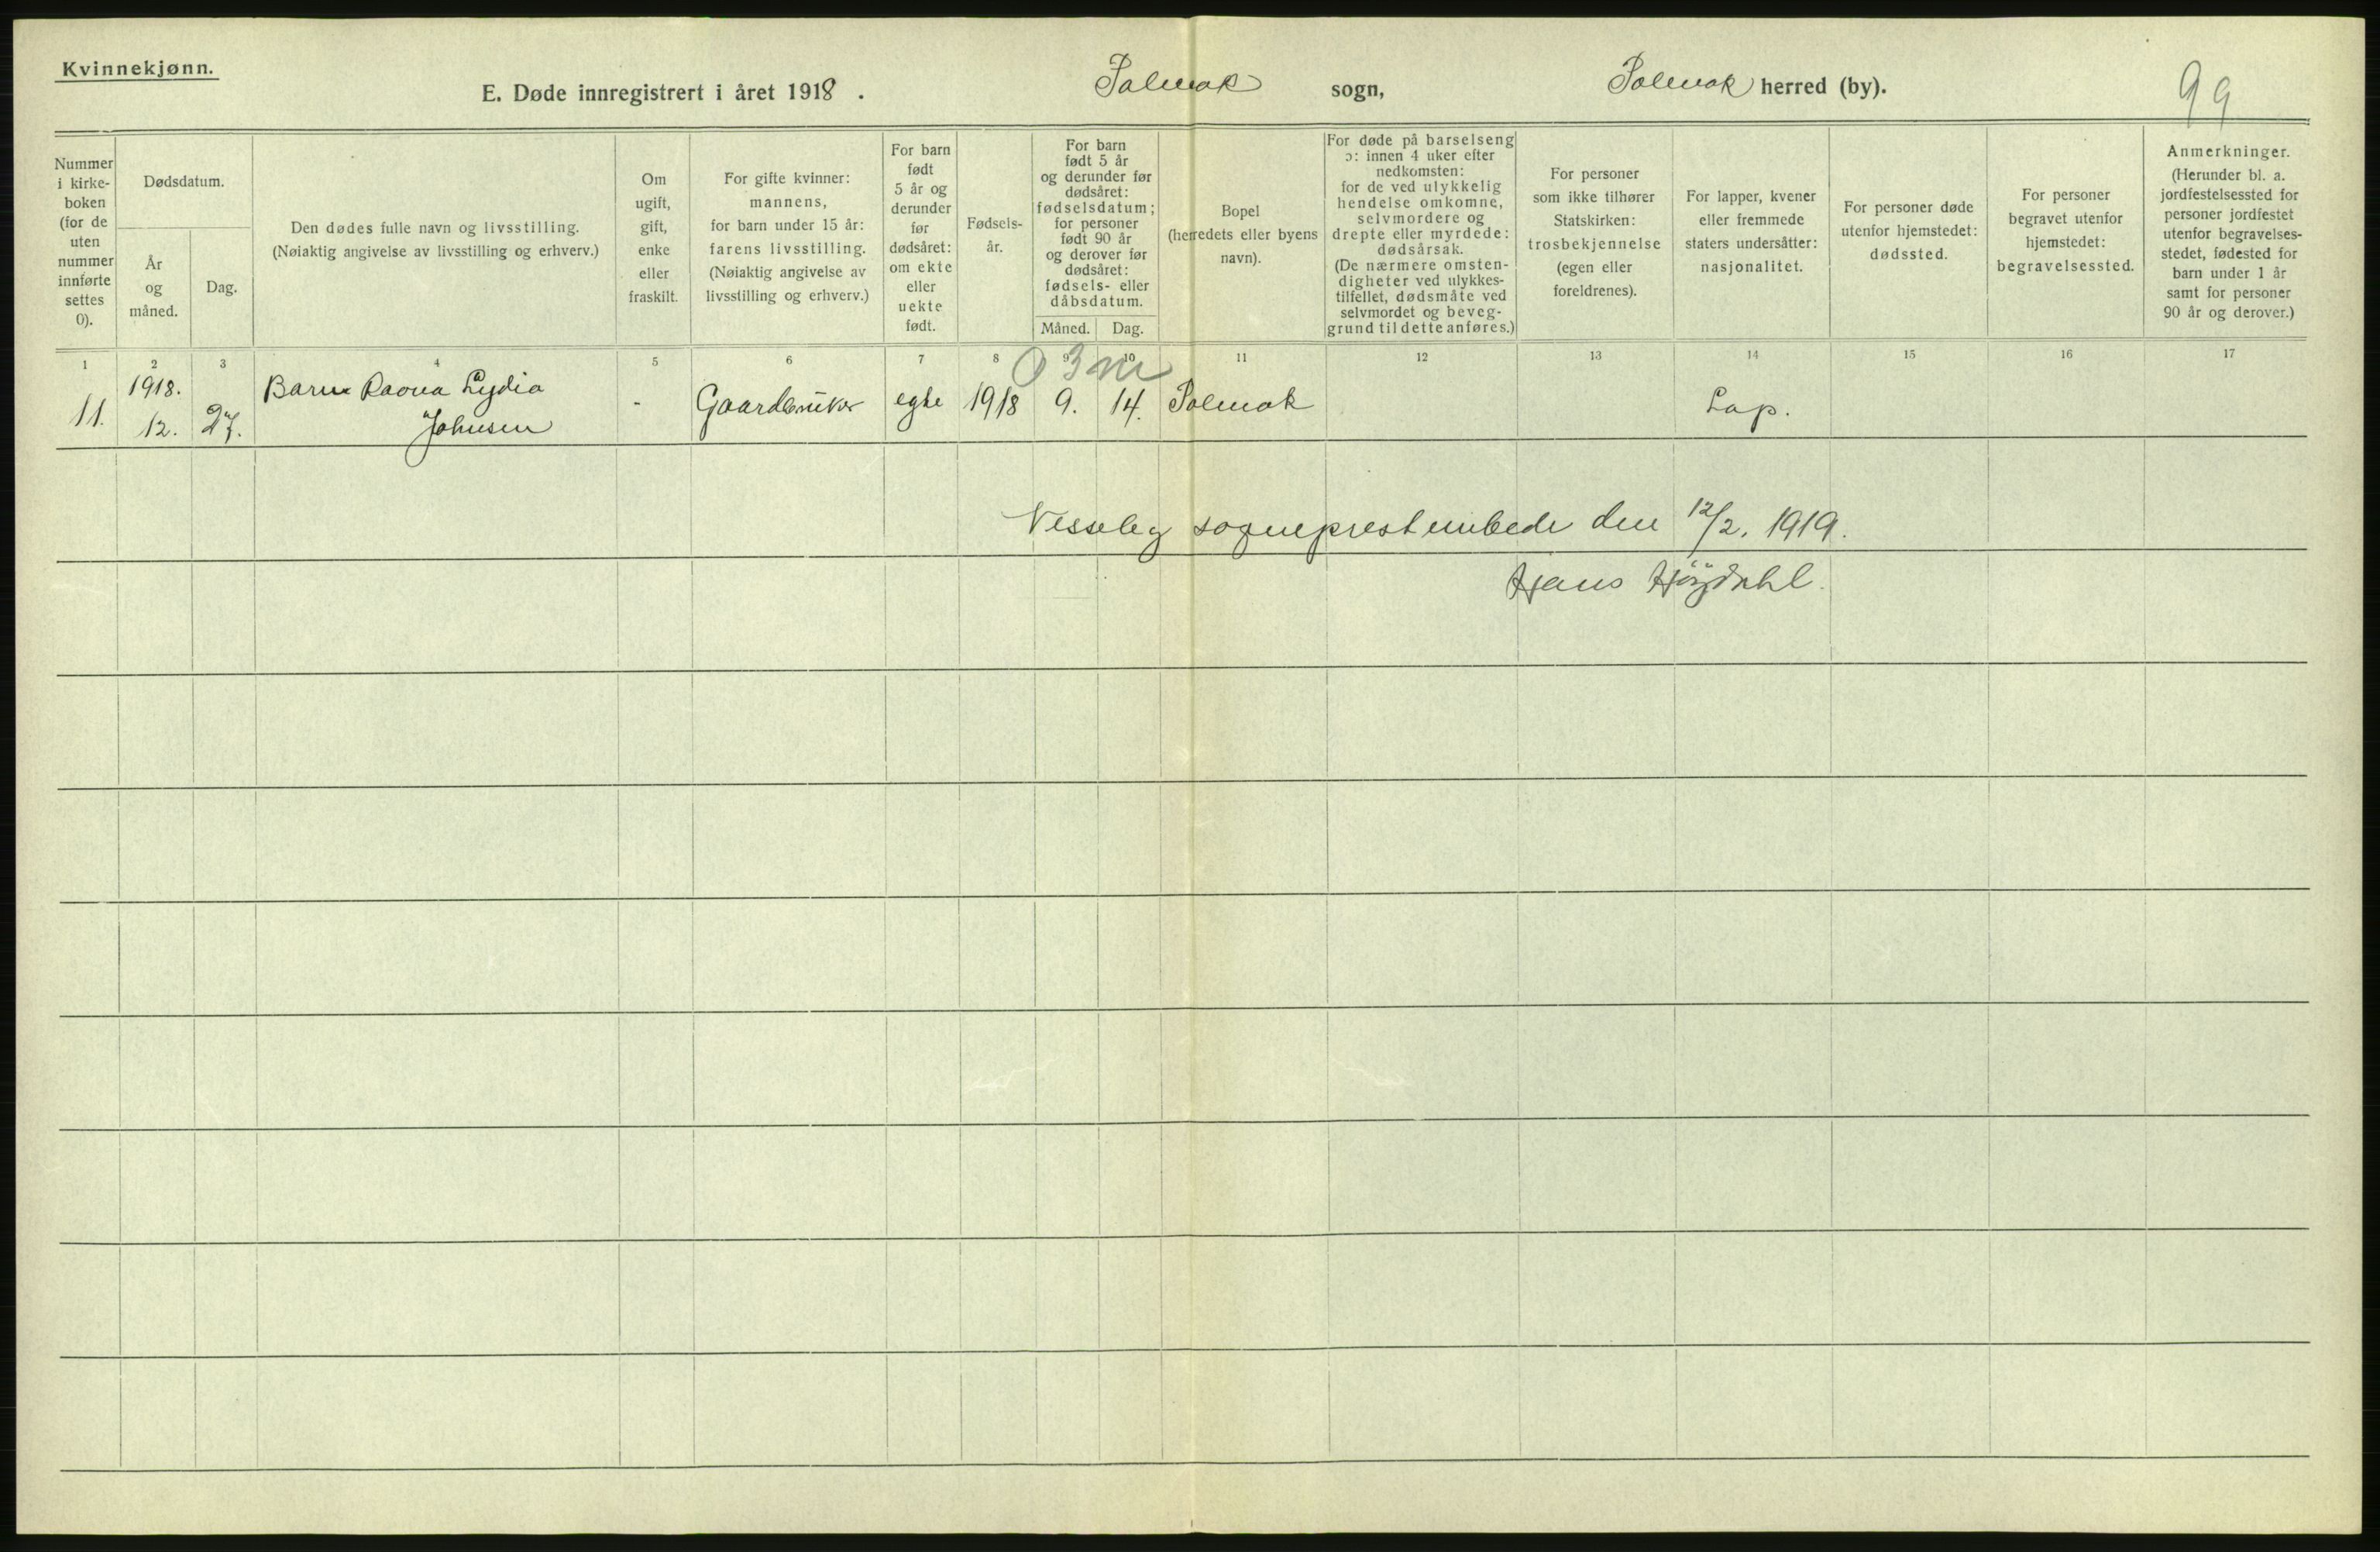 Kvinnekjønn.
E. Døde innregistrert i året 1918. Polmak sogn, Polmak herred (by). 99
Nummer i kirkeboken (for de uten nummer innførte settes 0).
Dødsdatum.
År og måned.
Dag.
Den dødes fulle navn og livsstilling.
(Nøiaktig angivelse av livsstilling og erhverv.)
Om ugift, gift, enke eller fraskilt.
For gifte kvinner: mannens, for barn under 15 år: farens livsstilling. (Nøiaktig angivelse av livsstilling og erhverv.)
For barn født 5 år og derunder før dødsåret: om ekte eller uekte født.
Fødselsår.
For barn født 5 år og derunder før dødsåret: fødselsdatum; for personer født 90 år og derover før dødsåret: fødsels- eller dåbsdatum.
Måned. Dag.
Bopel (herredets eller byens navn).
For døde på barselseng ɔ: innen 4 uker efter nedkomsten: for de ved ulykkelig hendelse omkomne, selvmordere og drepte eller myrdede: dødsårsak. (De nærmere omstendigheter ved ulykkestilfellet, dødsmåte ved selvmordet og beveggrund til dette anføres.)
For personer som ikke tilhører Statskirken: trosbekjennelse (egen eller foreldrenes).
For lapper, kvener eller fremmede staters undersåtter: nasjonalitet.
For personer døde utenfor hjemstedet: dødssted.
For personer begravet utenfor hjemstedet: begravelsessted.
Anmerkninger. (Herunder bl. a. jordfestelsessted for personer jordfestet utenfor begravelsesstedet, fødested for barn under 1 år samt for personer 90 år og derover.)
1 2 3 4 5 6 7 8 9 10 11 12 13 14 15 16 17
0 3 m
11. 1918. 12. 27. Barn Raona Lydia Johnsen - Gaardbruker egte 1918 9. 14. Polmak Lap.
Nesseby sogneprestembede den 12/2. 1919.
Hans Høydahl.